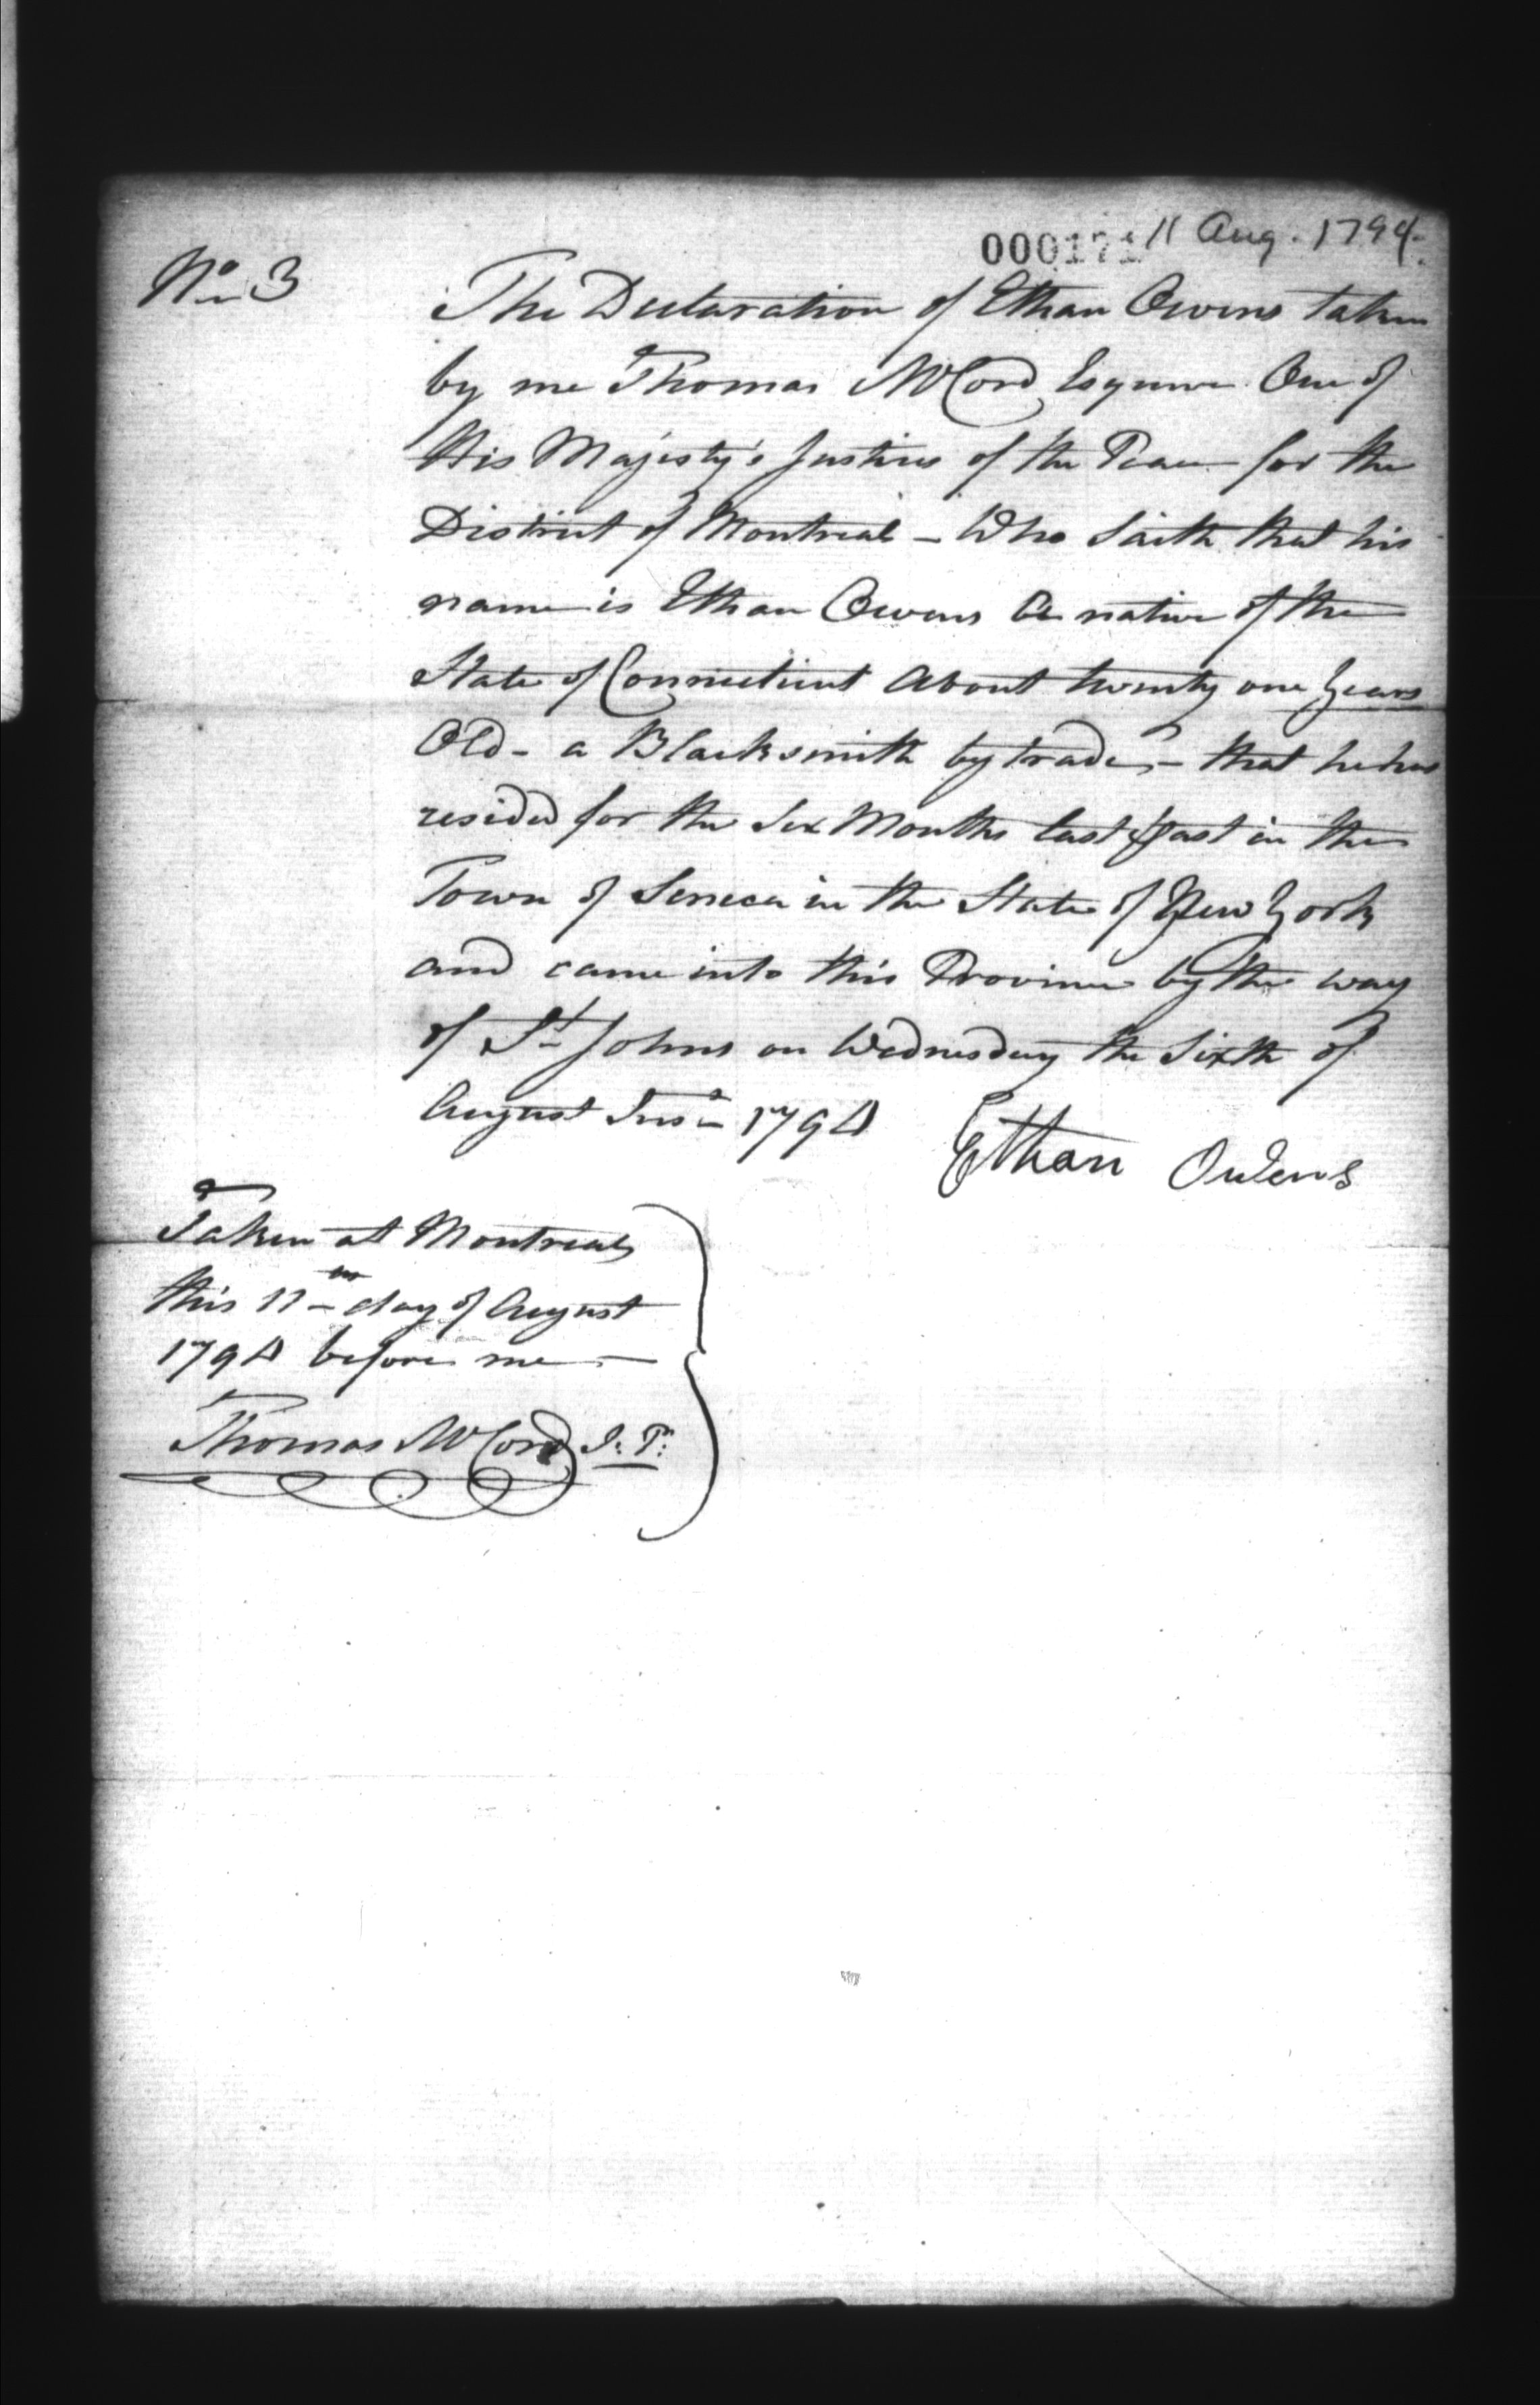 000171 11 Aug. 1794.
No 3
The Declaration of Ethan Owens taken
by me Thomas McCord Esquire One of
His Majesty's Justices of the Peace for the
District of Montreal - Who Saith that his
name is Ethan Owens a native of the
State of Connecticut About twenty one Years
Old - a Blacksmith by trade, - that he has
resided for the Six Months last past in the
Town of Seneca in the State of New York
and came into this Province by the way
of St Johns on Wednesday the Sixth of
August Inst 1794
Ethan Owens
Taken at Montreal
this 11th day of August
1794 before me -
Thomas McCord J: P: